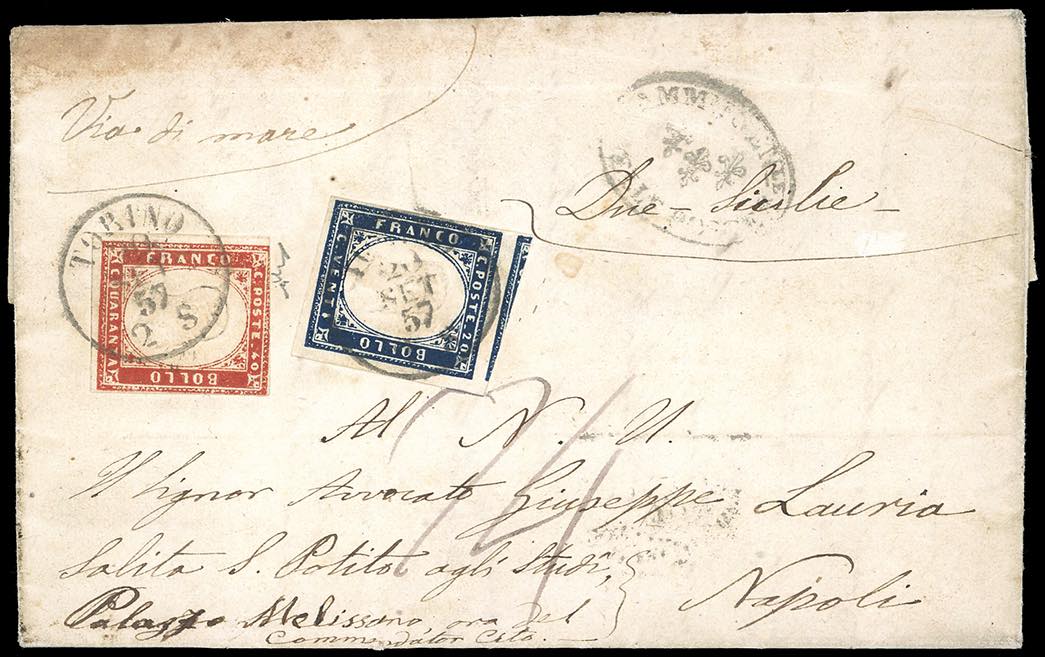 Via di mare
Due-Sicilie-
TORINO
57
2 S
FRANCO
C. POSTE. 40
BOLLO
C. QUARANTA
20
SET
57
FRANCO
C. POSTE. 20
BOLLO
C. VENTI
Al N. U.
Il Signor Avvocato Giuseppe Lauria
Salita S. Potito agli Studî,
Napoli
Palazzo Melissano ora del
Commendator Cito. —